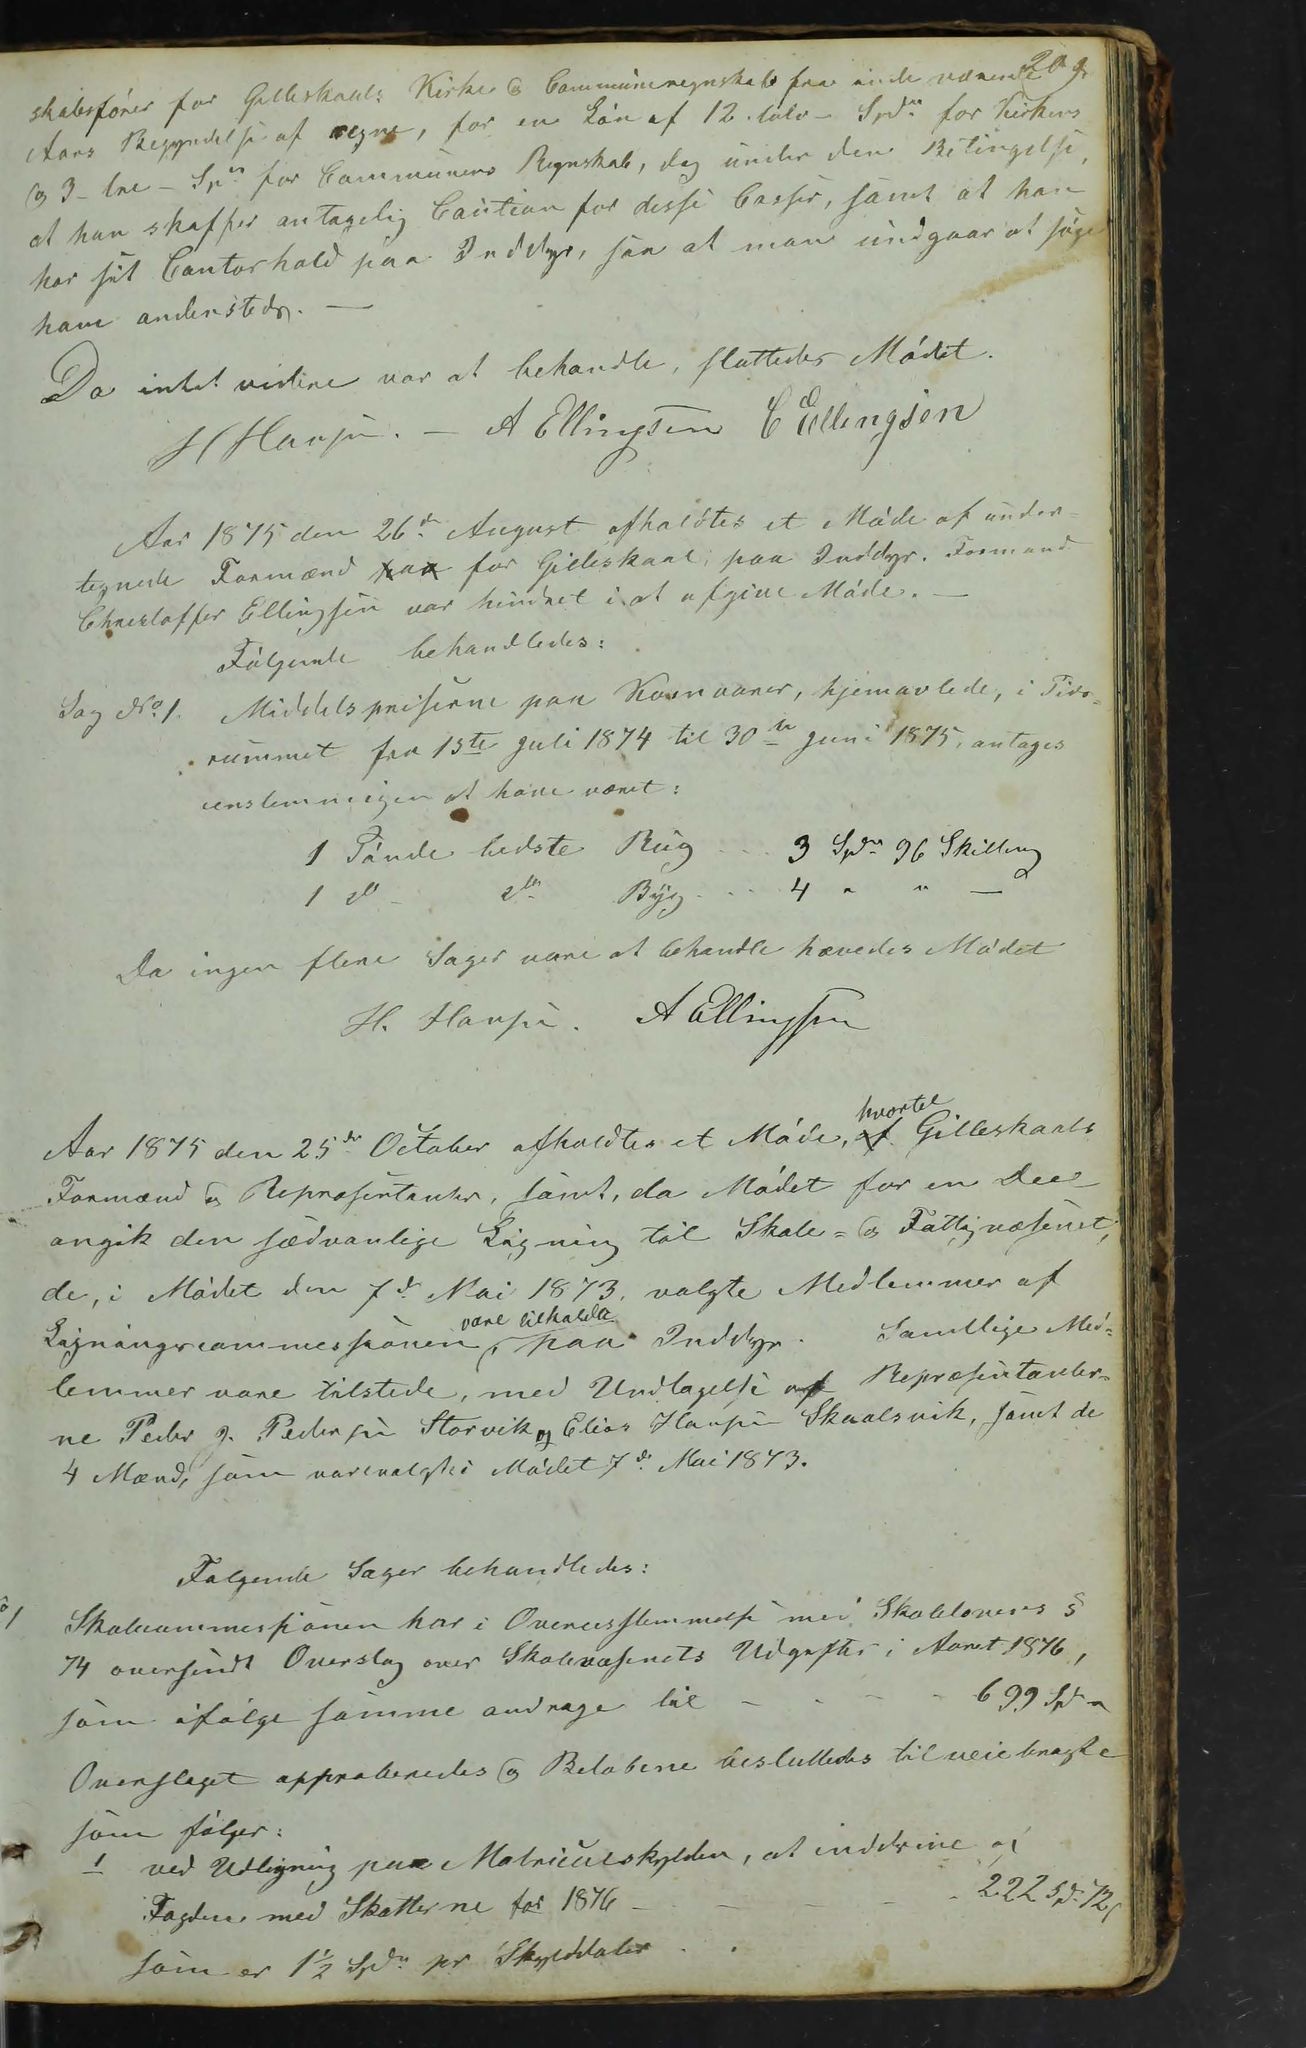 209
skabsförer for Gilleskaals Kirke & Communeregnskab fra inde værende
Aars Begyndelse af regne, for en Lön af 12 tolv Spdr for Kirkens
og 3 tre Spdr for Communens Regnskab, dog under den Betingelse,
at han skaffer antagelig Caution for disse Casser, samt at han
har sit Contorhold paa Inddyr, saa at man undgaar at søge
ham andensteds. —
Da intet videre var at behandle, sluttedes Mödet.
H Hansen. — A Ellingsen C Ellingsen
Aar 1875 den 26de August afholdtes et Möde af under=
tegnede Formænd paa for Gilleskaal, paa Inddyr. Formand
Christoffer Ellingsen var hindret i at afgive Möde. —
Fölgende behandledes:
Sag No 1. Middelspriserne paa Kornvarer, hjemavlede, i Tids=
rummet fra 1ste Juli 1874 til 30te Juni 1875, antages
eenstemmigen at have været:
1 Tönde bedste Rug ... 3 Spdr 96 Skilling
1 do — do Byg ... 4 " " —
Da ingen flere Sager vare at behandle hævedes Mödet
H. Hansen. A Ellingsen
Aar 1875 den 25de October afholdtes et Möde, af hvortil Gilleskaals
Formænd og Repræsentanter, samt, da Mödet for en Deel
angik den sædvanlige Ligning til Skole= og Fattigvæsenet,
de, i Mödet den 7de Mai 1873, valgte Medlemmer af
Ligningscommissionen, vare tilkaldte paa Inddyr. Samtlige Med=
lemmer vare tilstede, med Undtagelse af Repræsentanter=
ne Peder J. Pedersen Storvik og Elias Hansen Skaalsvik, samt de
4 Mænd, som var valgte i Mödet 7de Mai 1873.
Følgende Sager behandledes:
1 Skolecommissionen har i Overensstemmelse med Skolelovens §
74 oversendt Overslag over Skolevæsenets Udgifter i Aaret 1876,
som ifølge samme andrage til - - - - 699 Spd "
Overslaget approberedes og Beløbene besluttedes tilveiebragte
som følger:
1 ved Udligning paa Matriculskylden, at inddrive af
Fogden med Skatterne for 1876 - - - - 222 Spd 72
som er 1½ Spdr pr Skylddaler . .